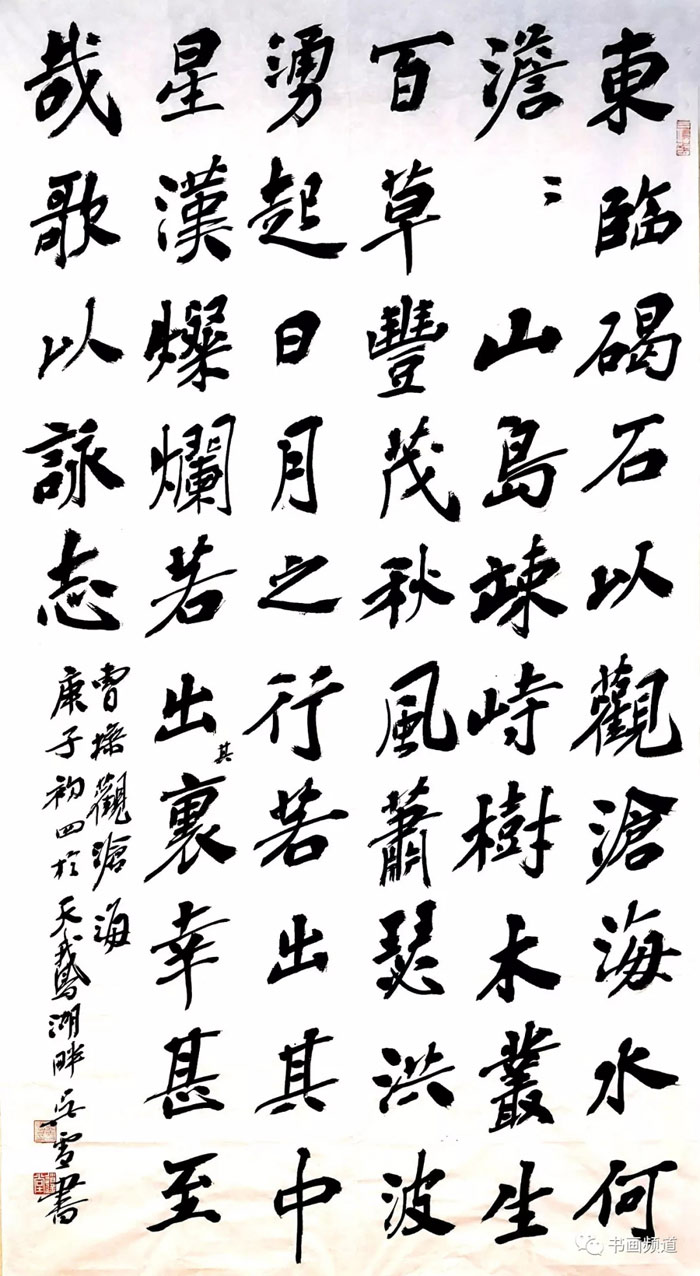 東臨碣石以觀滄海水何
澹〻山島竦峙樹木叢生
百草豐茂秋風蕭瑟洪波
湧起日月之行若出其中
星漢燦爛若出其裏幸甚至
哉歌以詠志
曹操觀滄海
庚子初四於天鵝湖畔吴雪書
书画频道